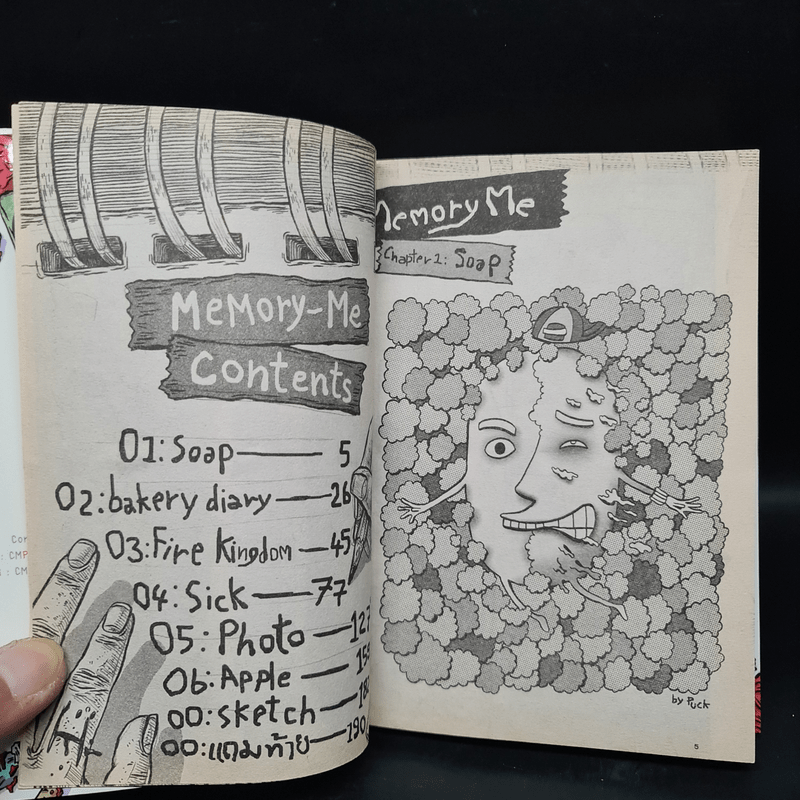 Memory-Me
Contents
01: Soap 5
02: bakery diary 26
03: Fire Kingdom 45
04: Sick 77
05: Photo
06: Apple
00: sketch
00: แถมท้าย 190
Memory Me
Chapter 1: Soap
by Puck
5